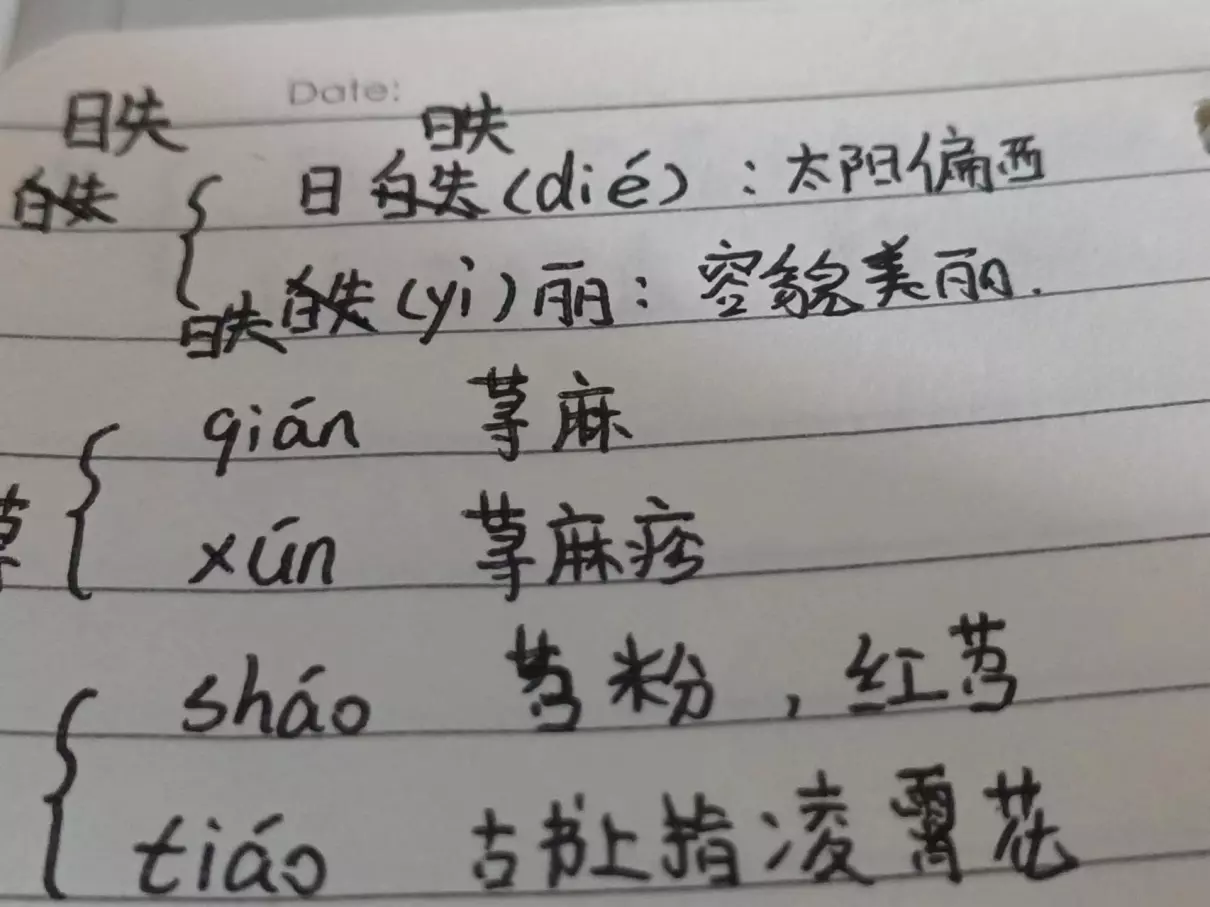 Date:
昳 昳
昳 日昳(dié):太阳偏西
昳 昳(yì)丽:容貌美丽.
qián 荨麻
荨
xún 荨麻疹
sháo 苕粉,红苕
tiáo 古书上指凌霄花